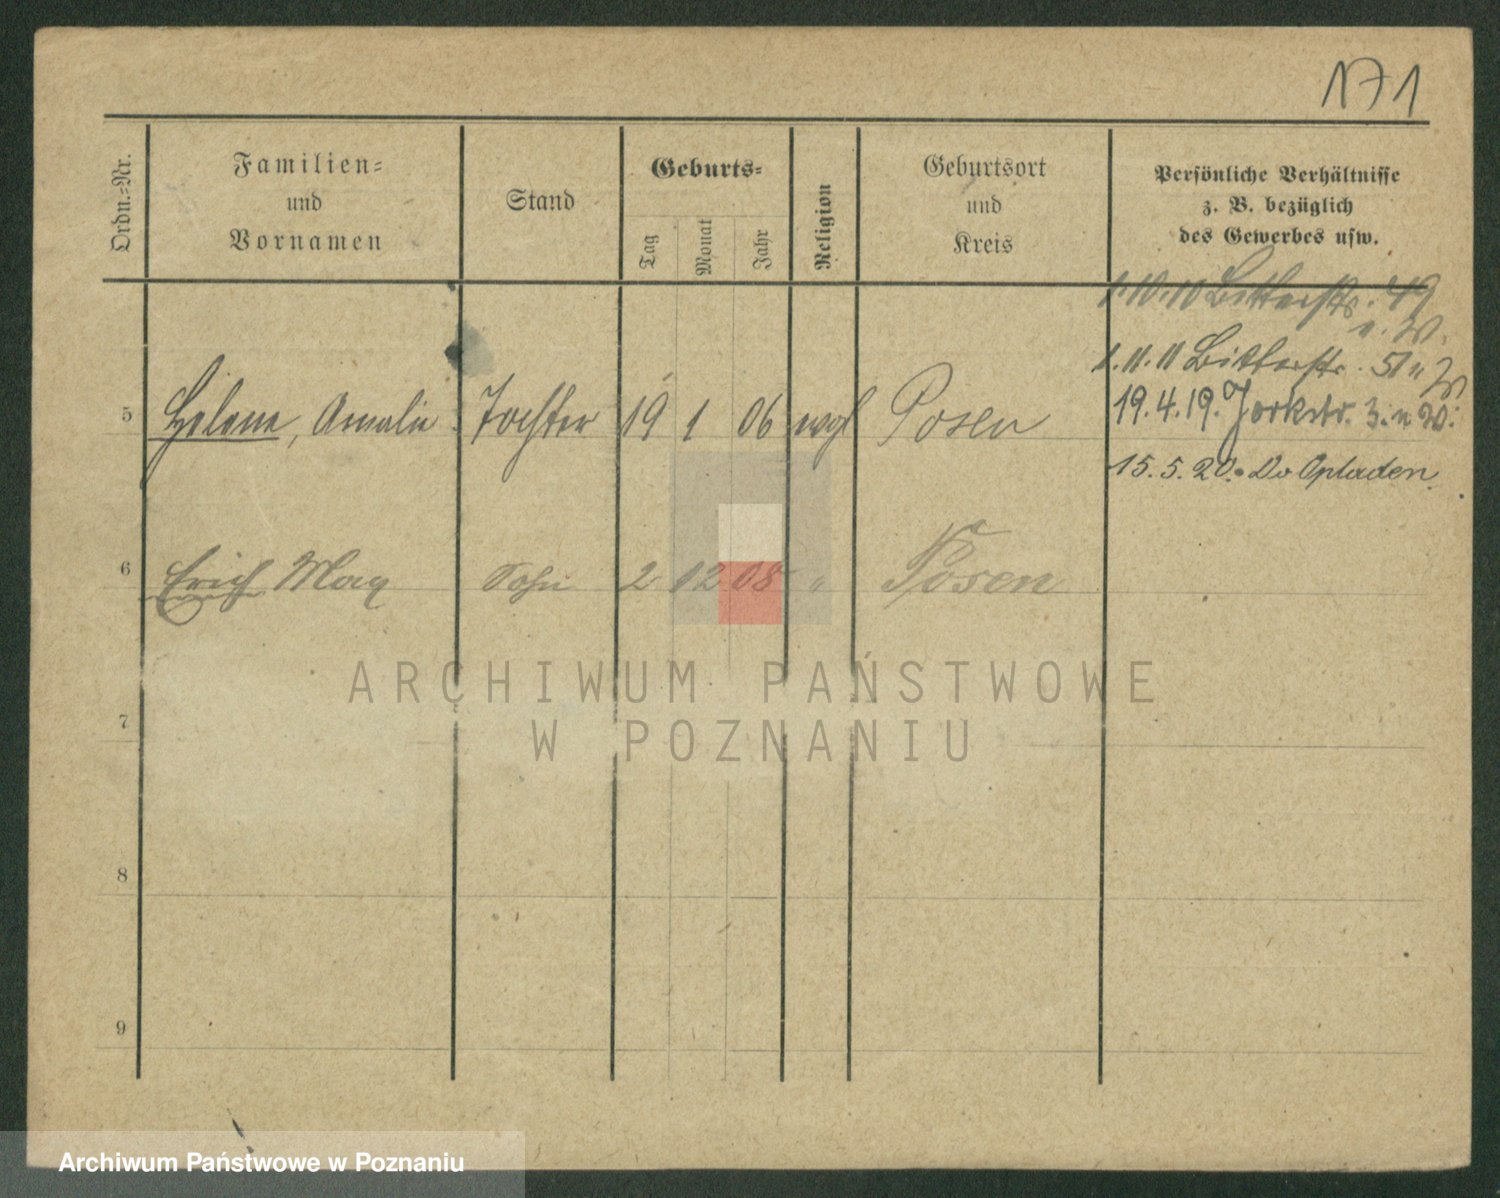 171
Ordn.-Nr.
Familien-
und
Vornamen
Stand
Geburts-
Tag
Monat
Jahr
Religion
Geburtsort
und
Kreis
Persönliche Verhältnisse
z. B. bezüglich
des Gewerbes usw.
1.10.10 Bitterstr. 49
u. W.
1.11.11 Bitterstr. 51 u W
5 Helene, Amalie Tochter 19 1 06 evgl Posen
19.4.19. Yorkstr. 3. u W.
15.5.20. Opladen.
6 Erich Max Sohn 2 12 08 " Posen
ARCHIWUM PAŃSTWOWE
W POZNANIU
7
8
9
Archiwum Państwowe w Poznaniu